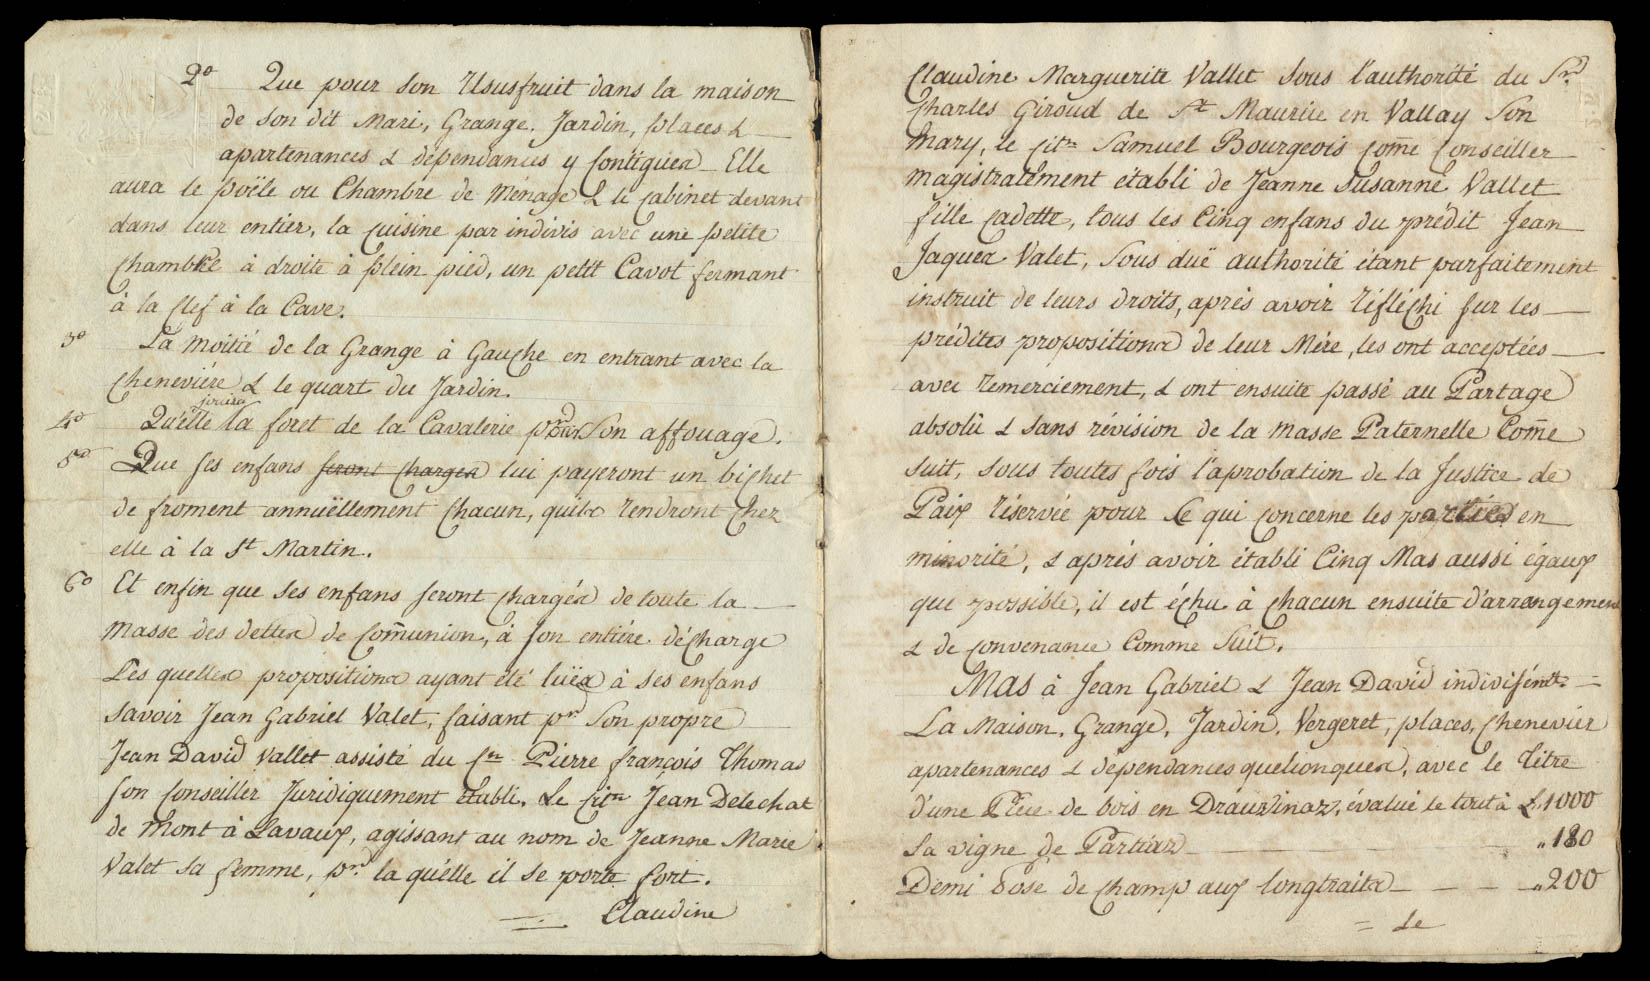 2º Que pour son Ususfruit dans la maison
de son dit Mari, Grange, Jardin, places &
apartenances & dépendances y contigues Elle
aura le poële ou Chambre de Ménage & le Cabinet devant
dans leur entier, la Cuisine par indivis avec une petite
Chambre à droite à plein pied, un petit Cavot fermant
à la Clef à la Cave.
3º La moitié de la Grange à Gauche en entrant avec la
Cheneviére & le quart du Jardin.
jouira
4º Qu'elle la foret de la Cavalerie pour Son affouage.
5º Que ses enfans seront chargés lui payeront un bichet
de froment annuëllement Chacun, quils rendront Chez
elle à la St Martin.
6º Et enfin que ses enfans seront chargés de toute la
masse des dettes de Com̃union, à son entiére décharge
Les quelles propositions ayant été luës à ses enfans
savoir Jean Gabriel Valet, faisant pr Son propre
Jean David Vallet assisté du Cn Pierre françois Thomas
son Conseiller Juridiquement établi. Le Citn Jean Delechat
de Mont à Lavaux, agissant au nom de Jeanne Marie
Valet sa femme, pr la qu'elle il se porte fort.
Claudine
Claudine Marguerite Vallet sous l'authorité du Sr
Charles Giroud de St Maurice en Vallay Son
Mary, le Citn Samuel Bourgeois Com̃e Conseiller
magistralement établi de Jeanne Susanne Vallet
fille Cadette, tous les Cinq enfans du prédit Jean
Jaques Valet, Sous duë authorité étant parfaitement
instruit de leurs droits, aprés avoir réfléchi sur les
prédites propositions de leur Mére, les ont acceptées
avec remerciement, & ont ensuite passé au Partage
absolû & sans révision de la masse Paternelle Com̃e
suit, sous toutes fois l'aprobation de la Justice de
Paix réservée pour Ce qui Concerne les parties en
minorité, & aprés avoir établi Cinq Mas aussi égaux
que possible, il est échu à Chacun ensuite d'arrangement
& de Convenance Comme Suit.
Mas à Jean Gabriel & Jean David indivisémt
La Maison, Grange, Jardin, Vergeret, places, Chenevier
apartenances & dépendances quelconques, avec le Titre
d'une Piéce de bois en Drauzinaz, évalué le tout à L. 1000
La vigne de Partiaz „ 180
Demi pose de Champ aux longtraits „ 200
Le